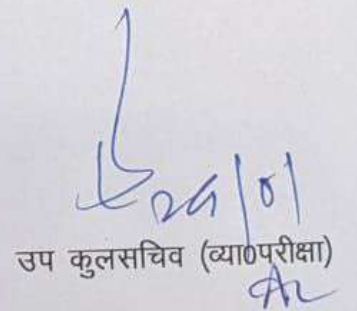 29/01
उप कुलसचिव (व्या०परीक्षा)